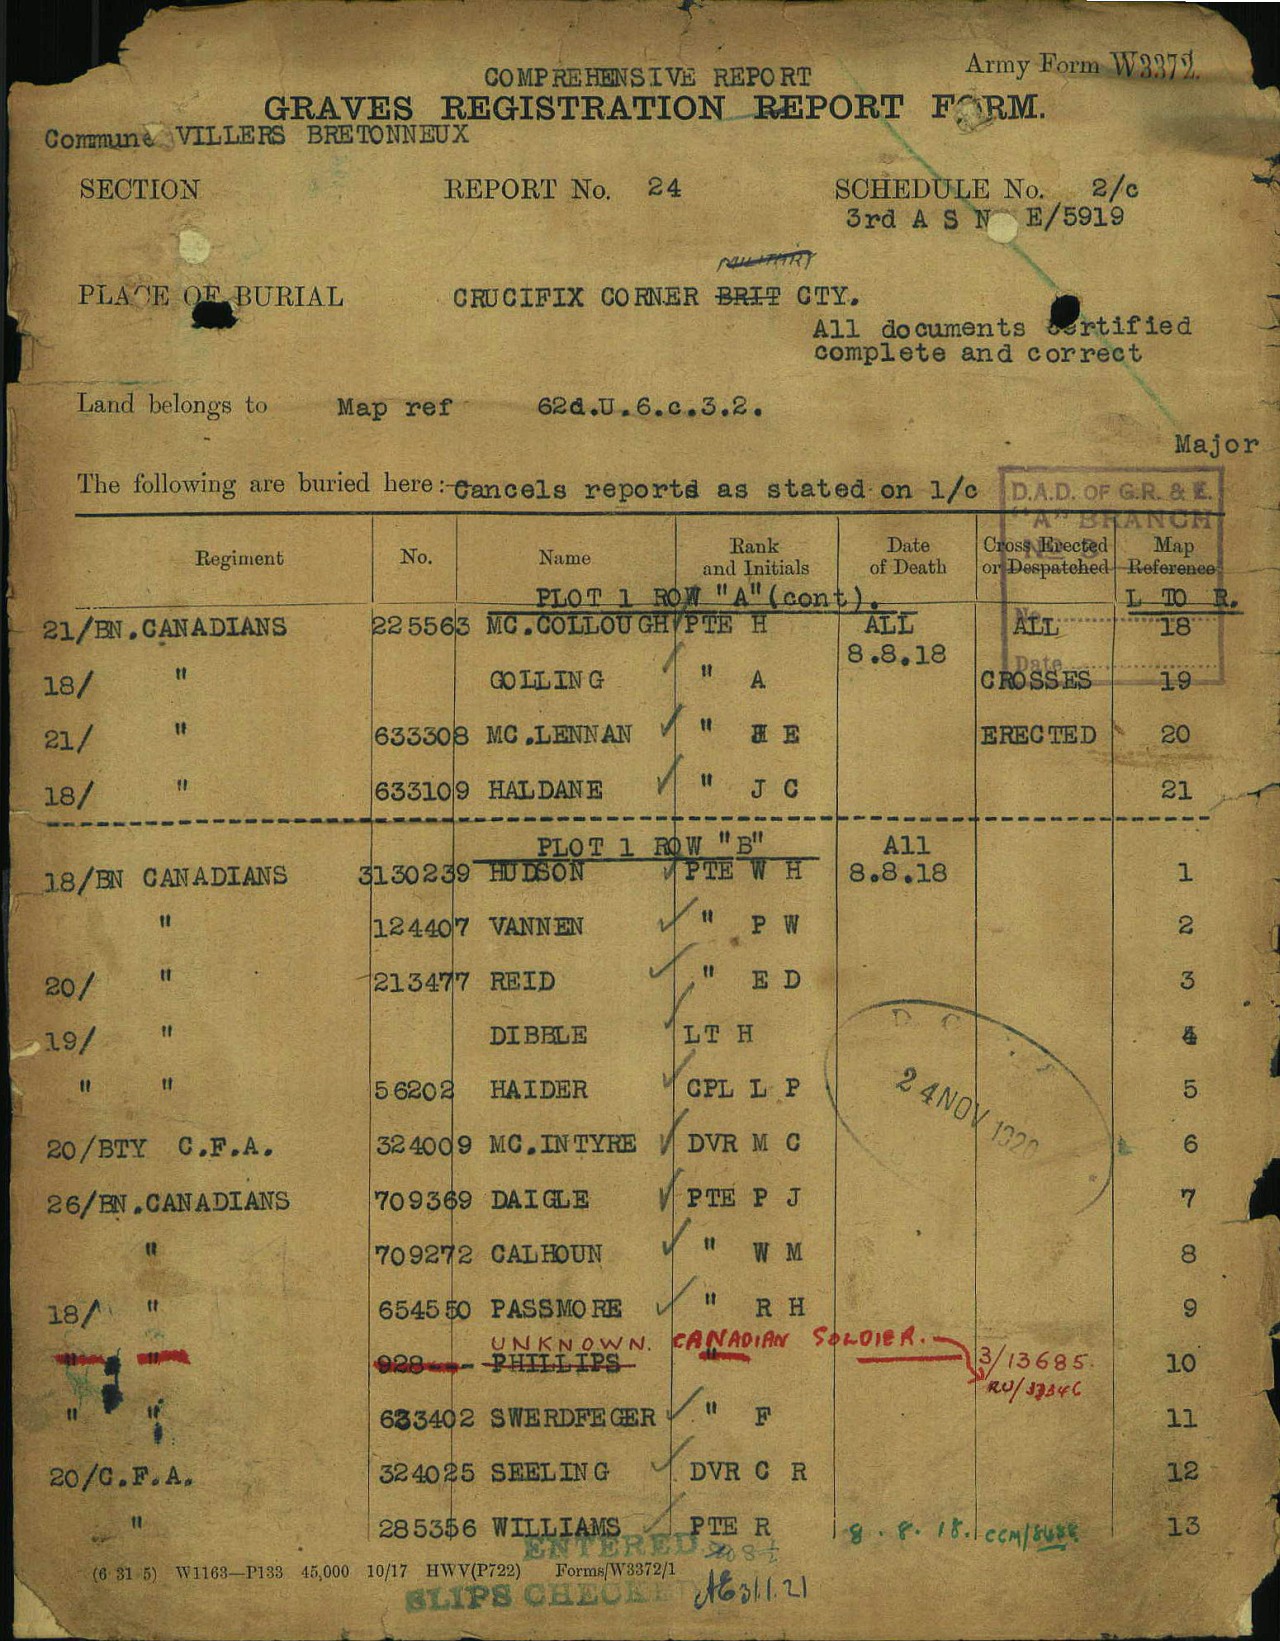 COMPREHENSIVE REPORT
Army Form W3372.
GRAVES REGISTRATION REPORT FORM.
Commune VILLERS BRETONNEUX
SECTION REPORT No. 24 SCHEDULE No. 2/c
3rd A S N E/5919
MILITARY
PLACE OF BURIAL CRUCIFIX CORNER BRIT CTY.
All documents certified
complete and correct
Land belongs to Map ref 62d.U.6.c.3.2.
Major
The following are buried here:- Cancels reports as stated on 1/c
D.A.D. OF G.R. & E.
"A" BRANCH
Regiment No. Name Rank and Initials Date of Death Cross Erected or Despatched Map Reference
PLOT 1 ROW "A"(cont). L TO R.
No.
21/BN.CANADIANS 225563 MC.COLLOUGH PTE H ALL ALL 18
8.8.18
Date
18/ " GOLLING " A CROSSES 19
21/ " 633308 MC.LENNAN " H E ERECTED 20
18/ " 633109 HALDANE " J C 21
PLOT 1 ROW "B" All
18/BN CANADIANS 3130239 HUDSON PTE W H 8.8.18 1
" 124407 VANNEN " P W 2
20/ " 213477 REID " E D 3
19/ " DIBBLE LT H 4
" " 56202 HAIDER CPL L P 5
24 NOV 1920
20/BTY C.F.A. 324009 MC.INTYRE DVR M C 6
26/BN.CANADIANS 709369 DAIGLE PTE P J 7
" 709272 CALHOUN " W M 8
18/ " 654550 PASSMORE " R H 9
UNKNOWN. CANADIAN SOLDIER.
" " 928--- PHILLIPS " 3/13685. 10
" " 633402 SWERDFEGER " F 11
20/C.F.A. 324025 SEELING DVR C R 12
" 285356 WILLIAMS PTE R 8.8.18. 13
ENTERED
(6 31 5) W1163—P133 45,000 10/17 HWV(P722) Forms/W3372/1
SLIPS CHECKED 31.1.21